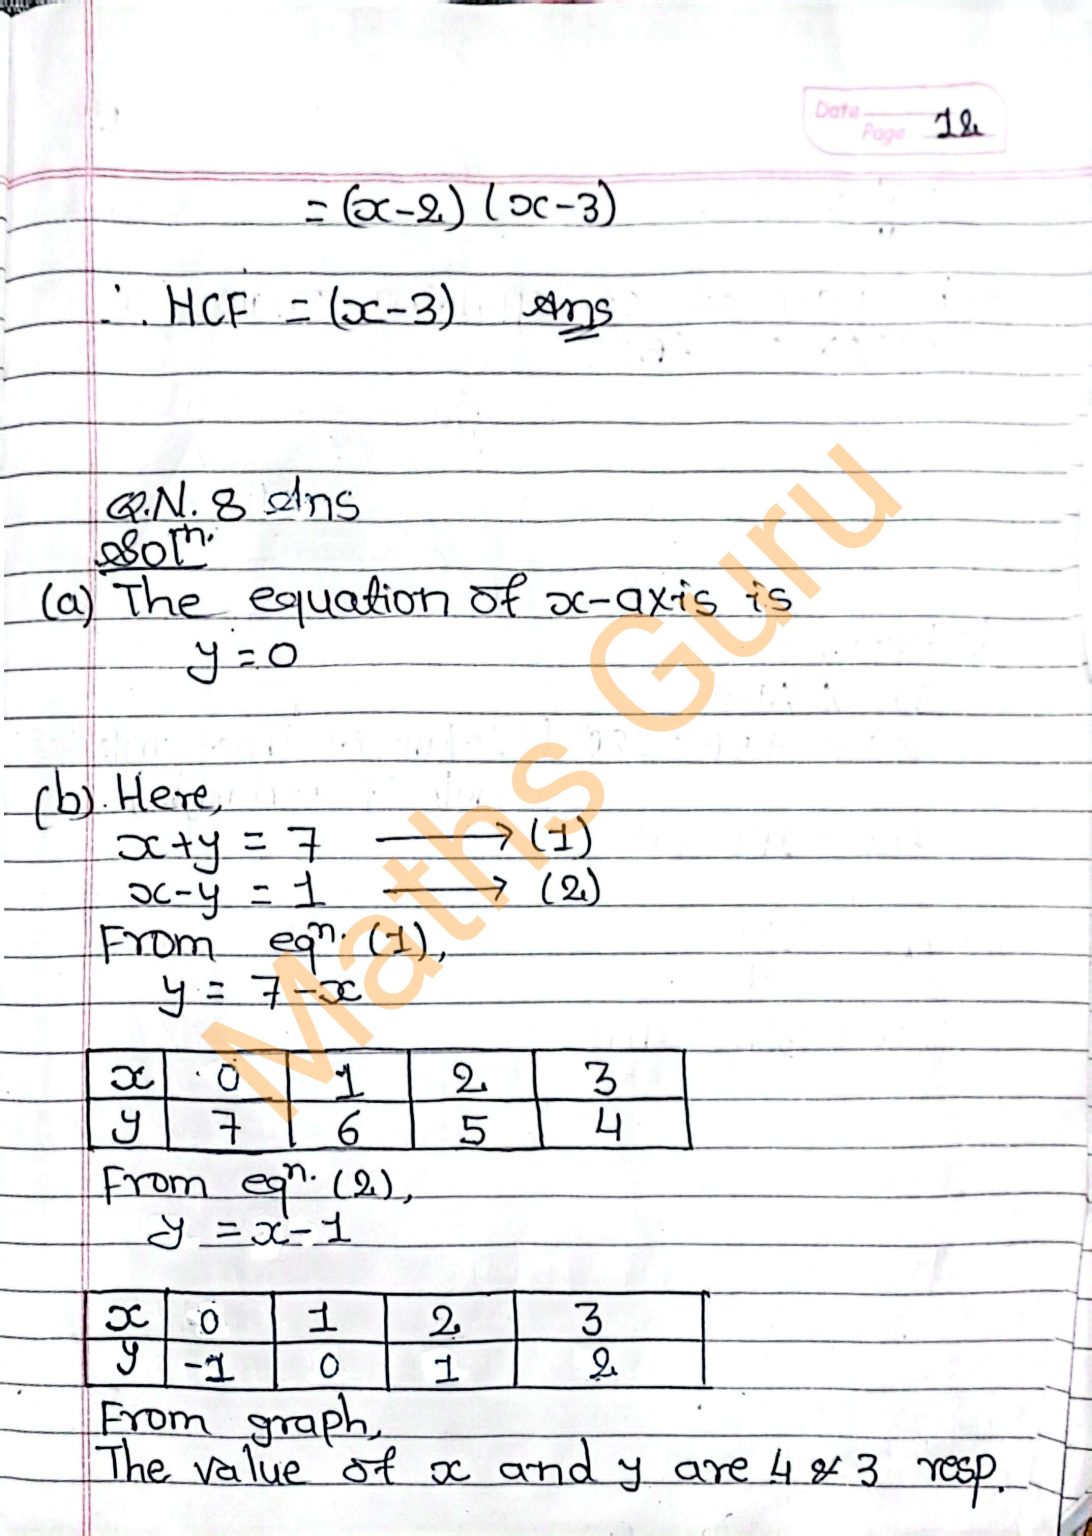 Date
Page 12
= (x-2) (x-3)
∴ HCF = (x-3) Ans
Q.N. 8 Ans
Solⁿ.
(a) The equation of x-axis is
y = 0
(b). Here,
x+y = 7 ⟶ (1)
x-y = 1 ⟶ (2)
From eqⁿ. (1),
y = 7-x
x 0 1 2 3
y 7 6 5 4
From eqⁿ. (2),
y = x-1
x 0 1 2 3
y -1 0 1 2
From graph,
The value of x and y are 4 & 3 resp.
Maths Guru